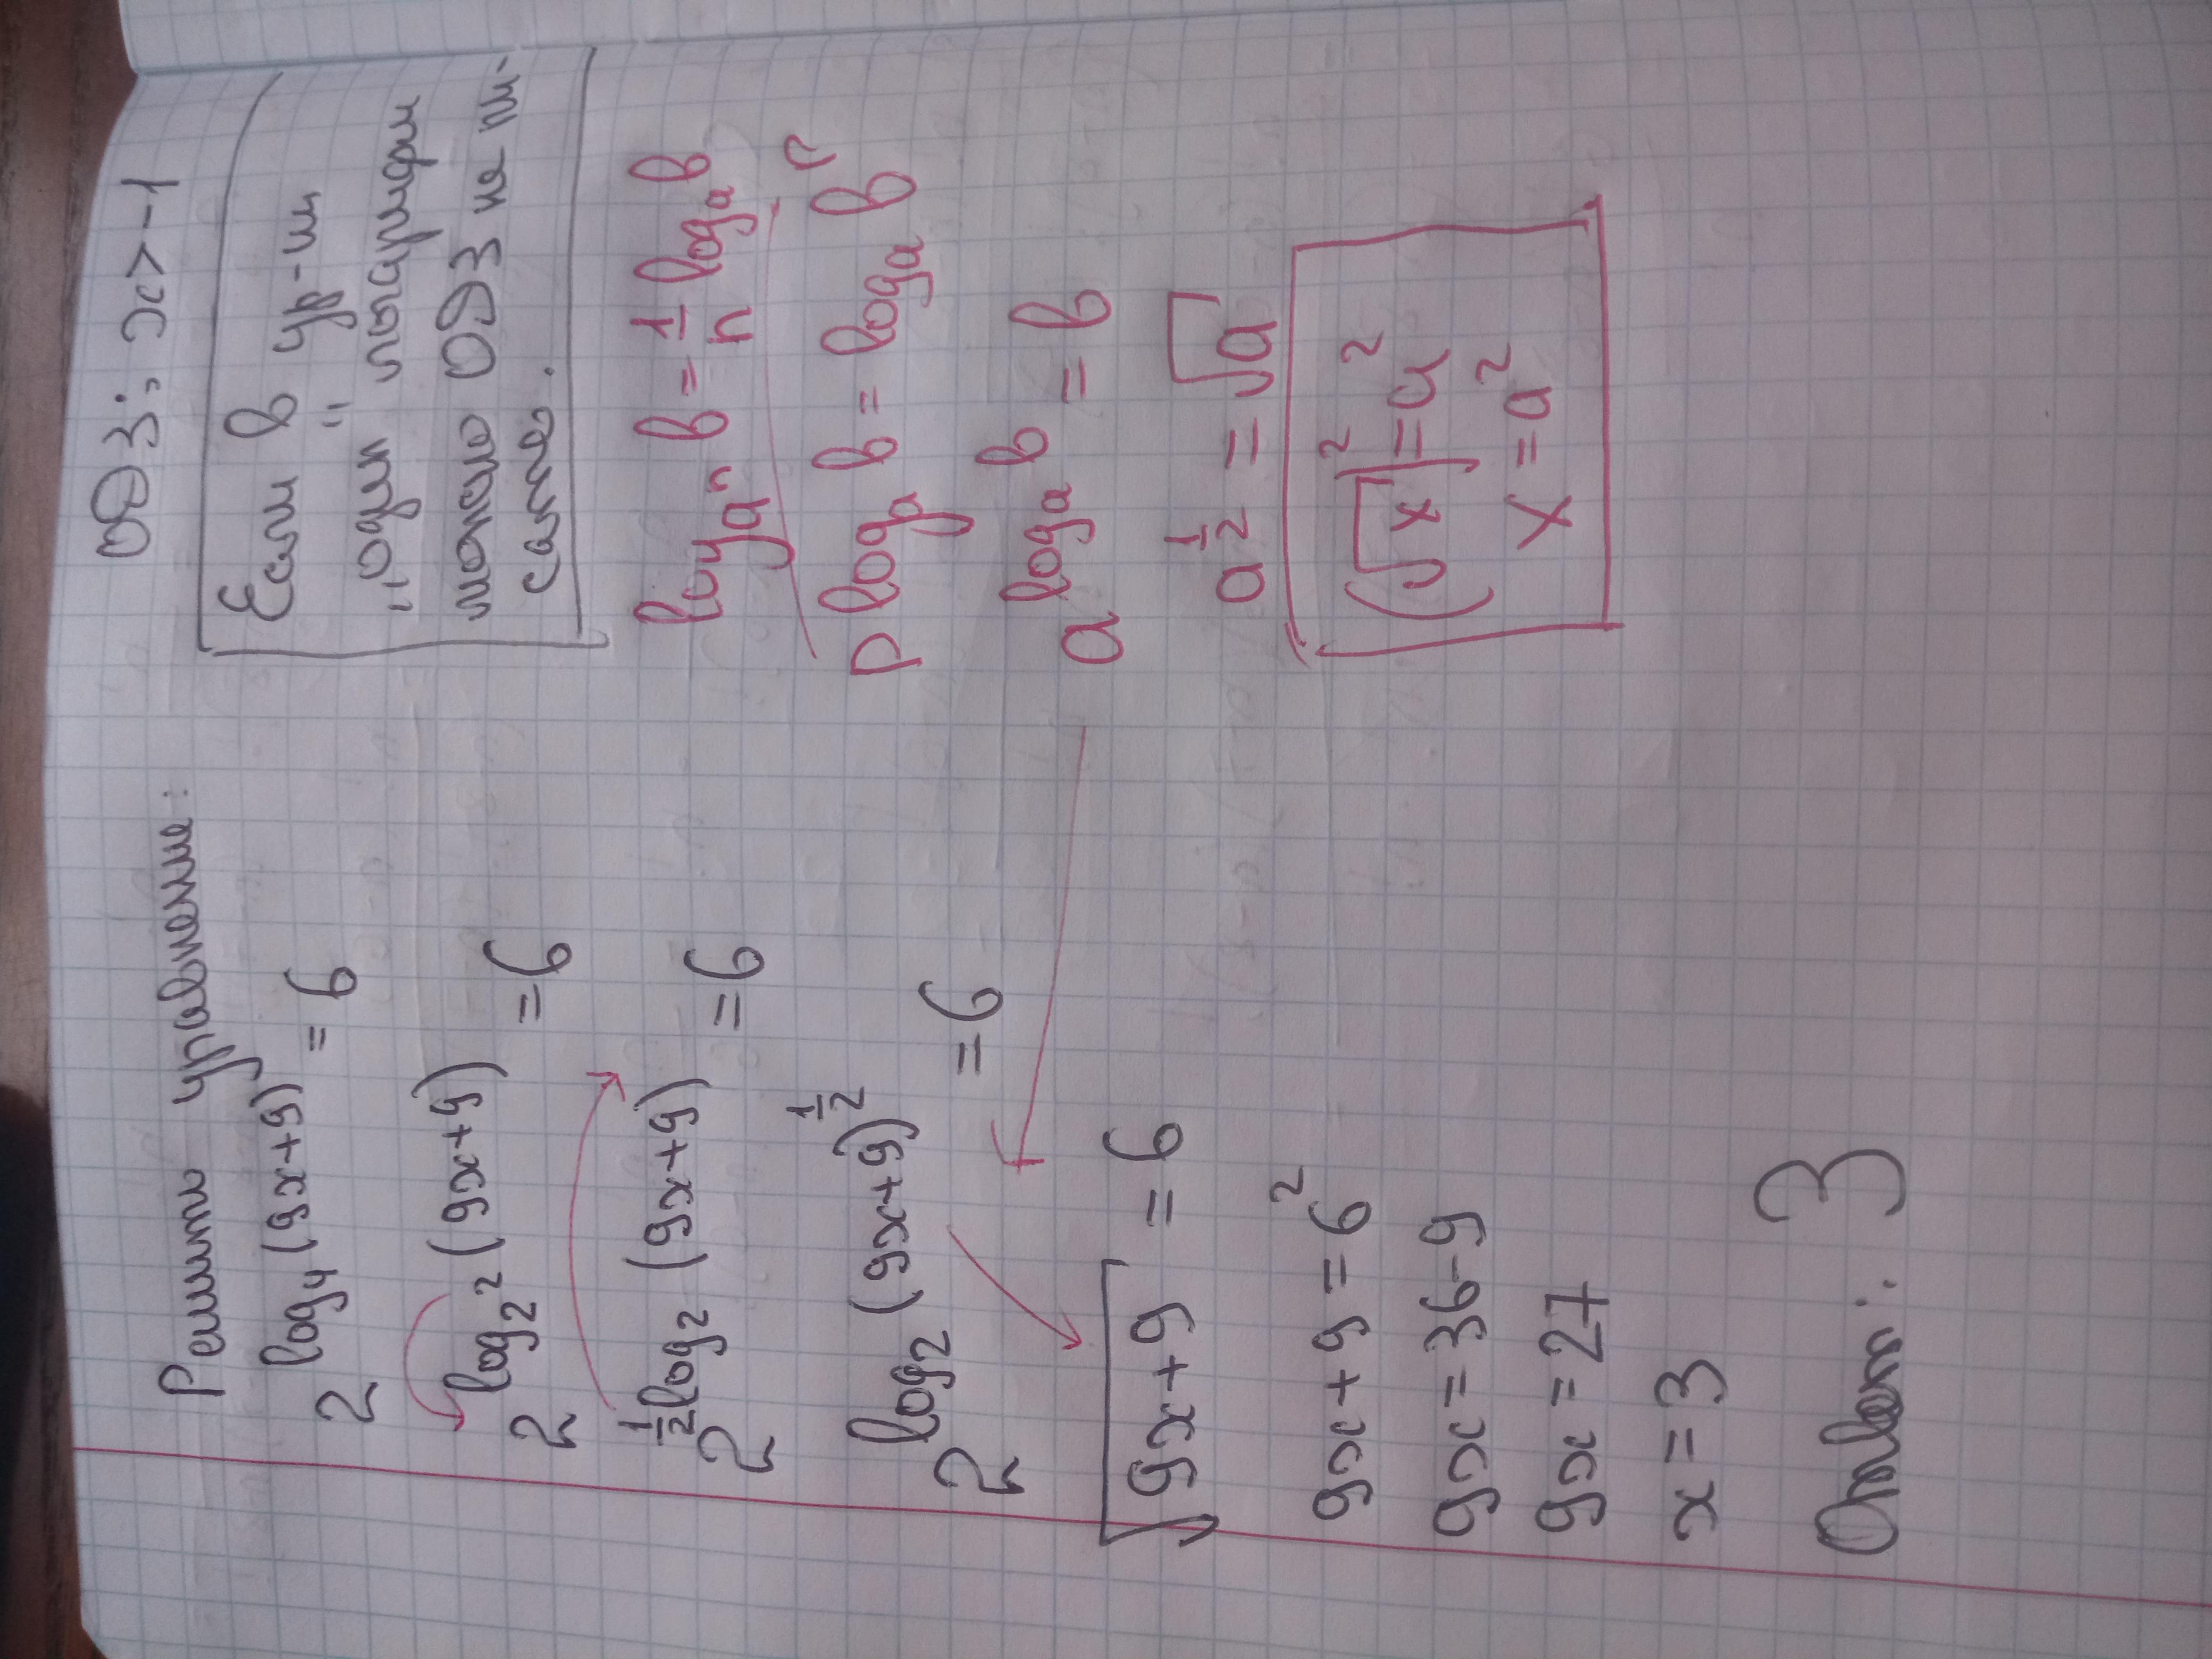 Решить уравнение:
2^{log₄(9x+9)} = 6
2^{log_{2²}(9x+9)} = 6
2^{½log₂(9x+9)} = 6
2^{log₂(9x+9)^{½}} = 6
√(9x+9) = 6
9x+9=6²
9x=36-9
9x=27
x=3
Ответ: 3
ОДЗ: x>-1
Если в ур-ии
„один“ логарифм
можно ОДЗ не пи-
сать.
log_{aⁿ} b = 1/n log_a b
p log_a b = log_a b^p
a^{log_a b} = b
a^{½} = √a
(√x)² = a²
x = a²